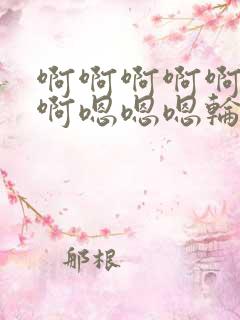 啊啊啊啊啊
啊嗯嗯嗯輪
那根